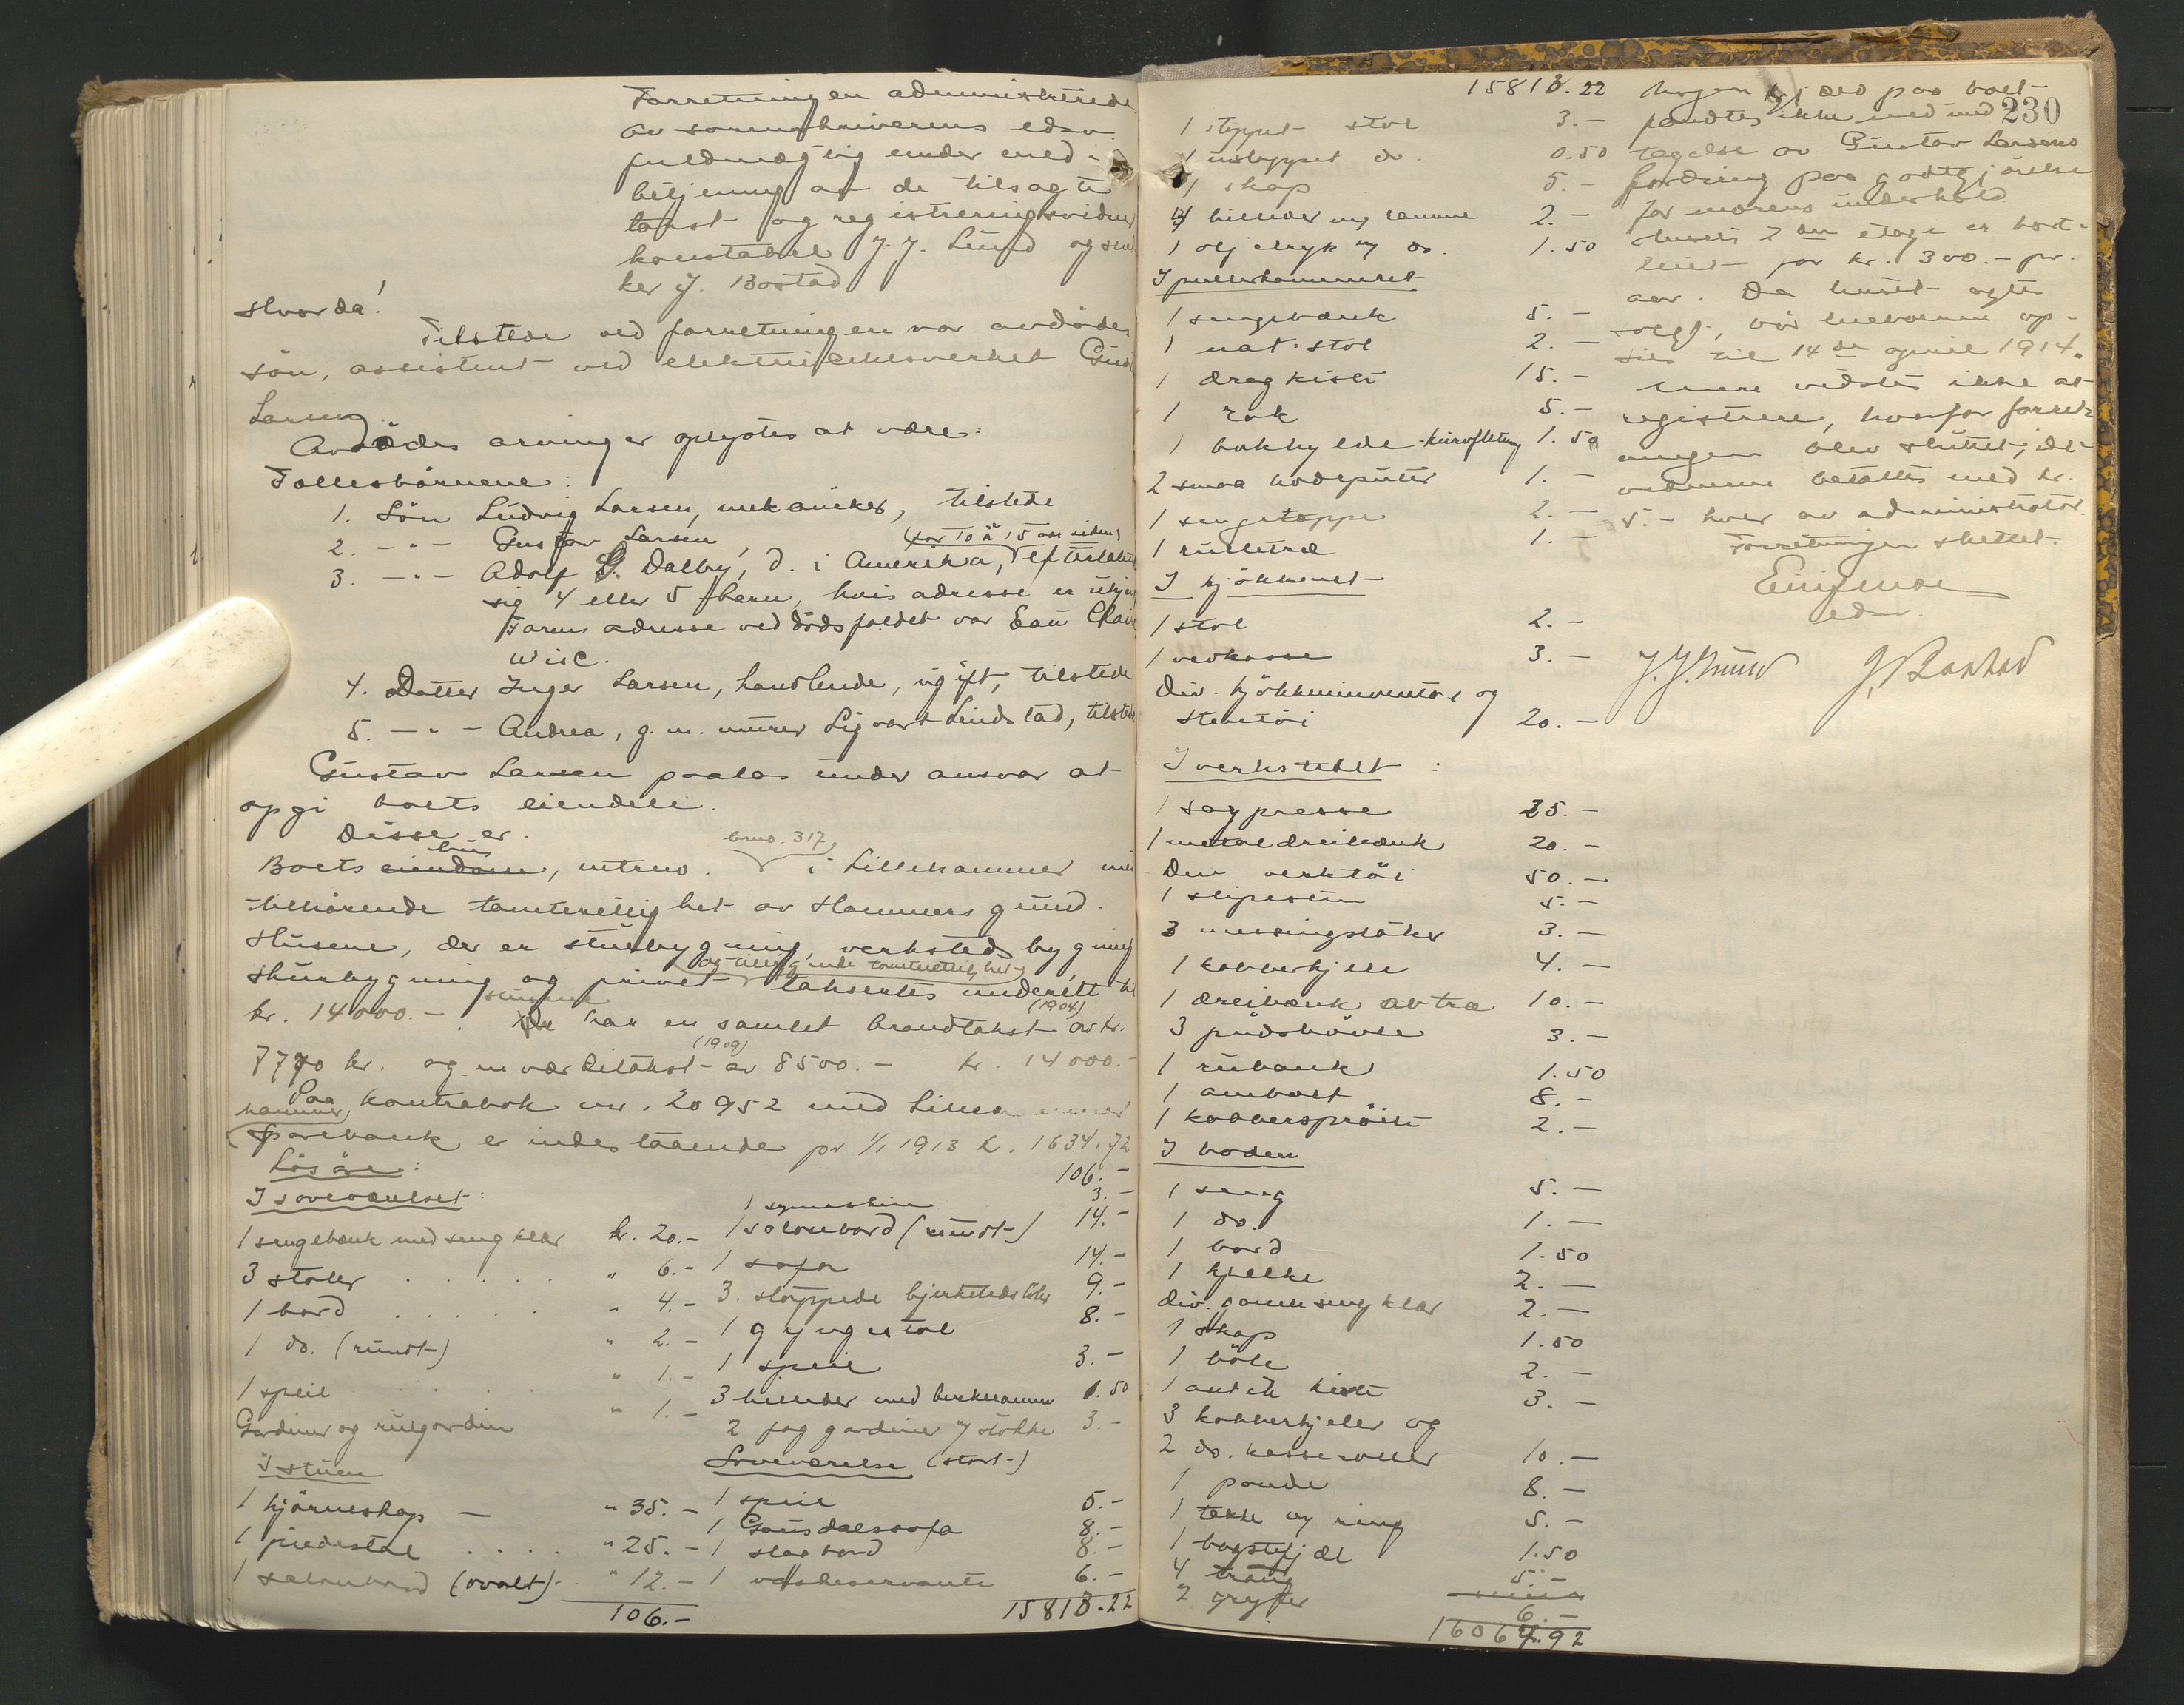 Forretningen administrertes
av sorenskriverens edsv.
fuldmægtig under med-
betjening av de tilsagte
takst- og registreringsvidner
konstabel J. J. Lund og
ker J. Bostad
Hvorda!
Tilstede ved forretningen var avdødes
søn, assistent ved elektricitetsverket
Larsen.
Avdødes arvinger oplystes at være:
Fællesbørnene:
1. Søn Ludvig Larsen, mekaniker, tilstede
2. -"- Gustav Larsen,
(for 10 à 15 aar siden)
3. -"- Adolf G. Dalby, d. i Amerika, efterlatt
sig 4 eller 5 barn, hvis adresse er
Farens adresse ved dødsfaldet var Eau Clair
Wisc.
4. Datter Inger Larsen, handlende, ugift, tilstede
5. -"- Andrea, g. m. murer Sigvart Lindstad, tilstede
Gustav Larsen paala under ansvar at
opgi boets eiendele.
Disse er.
hus brno. 317
Boets eiendom, mtrno. i Lillehammer
tilhørende tomterettighet av Hammers grund.
Husene, der er stuebygning, verkstedsbygning
og tilliggende tomterettighet
skurbygning og privet taksertes underett til
kr. 14000.- De har en samlet brandtakst av kr.
(1904)
(1909)
7770 kr. og en værditakst av 8500.- kr. 14000.-
Paa kontrabok nr. 20952 med Lille-
hammer
sparebank er indestaaende pr 1/1 1913 k. 1634.72
Løsøre: 106.-
I soveværelset: 1 symaskin 3.-
1 sengebænk med sengklær kr. 20.- 1 salonbord (rundt) 14.-
3 stoler " 6.- 1 sofa 14.-
1 bord " 4.- 3 stoppede bjerketræstoler 9.-
1 do. (rundt) " 2.- 1 gyngestol 8.-
1 speil " 1.- 1 speil 3.-
Gardiner og rulgardin " 1.- 3 billeder med bjerkeramme 1.50
2 fag gardiner m/ stokke 3.-
I stuen Soveværelse (stort)
1 hjørneskap " 35.- 1 speil 5.-
1 piedestal " 25.- 1 Gausdalssofa 8.-
1 slagbord 8.-
1 salonbord (ovalt) " 12.- 1 vaskeservante 6.-
106.- 15813.22
230
15813.22
1 stoppet stol 3.-
1 ustoppet do. 0.50
1 skap 5.-
4 billeder m/ ramme 2.-
1 oljetryk m/ do. 1.50
I pikekammeret
1 sengebænk 5.-
1 nat-stol 2.-
1 dragkiste 15.-
1 rok 5.-
1 bokhylde - kurvfletning 1.50
2 smaa hodeputer 1.-
1 sengetæppe 2.-
1 rulletræ 1.-
I kjøkkenet
1 stol 2.-
1 vedkasse 3.-
Div. kjøkkeninventar og
stentøi 20.-
I verkstedet:
1 sagpresse 25.-
1 metaldreiebænk 20.-
Div verktøi 50.-
1 slipesten 5.-
3 messingstaker 3.-
1 kobberkjele 4.-
1 dreibænk av træ 10.-
3 pudshøvle 3.-
1 rubank 1.50
1 ambolt 8.-
1 kobbersprøite 2.-
I boden
1 seng 5.-
1 do. 1.-
1 bord 1.50
1 kjelke 2.-
div. gamle sengklær 2.-
1 skap 1.50
1 bøle 2.-
1 antik kiste 3.-
3 kobberkjeler og
2 do. kasseroller 10.-
1 pande 8.-
1 takke og ring 5.-
1 bakstefjæl 1.50
4 5.-
2 gryter 6.-
16064.92
Nogen gjæld paa boet
fandtes ikke med und-
tagelse av Gustav Larsens
fordring paa godtgjørelse
for morens underhold
Husets 2den etage er bort-
leiet for kr. 300.- pr.
aar. Da huset agtes
solgt, vær leieboerne op-
sies til 14de april 1914.
Mere vidstes ikke at
registrere, hvorfor forret-
ningen blev sluttet, idet
vidnerne betaltes med kr.
5.- hver av administrator.
Forretningen sluttet.
edsv.
J. J. Lund J. Bostad